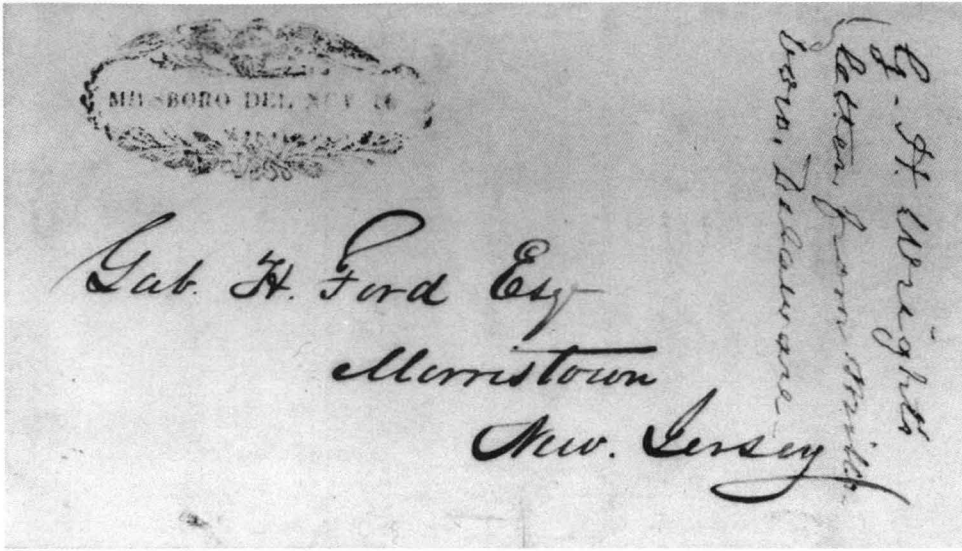 MILLSBORO DEL NOV 16
Gab. H. Ford Esq
Morristown
New. Jersey
G. H. Wrights
letter, from Mills-
boro, Delaware